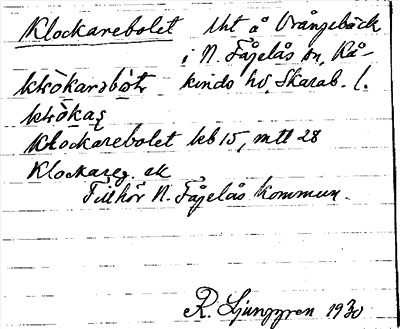 Klockarebolet Uht å Vrångebäck
i N. Fågelås sn, Kå-
klòkarəbòtə kinds hd, Skarab. l.
klòkaʂ
Klockarebolet kb 15, mtl 28
Klockareg. ek
Tillhör N. Fågelås kommun.
R. Ljunggren 1930